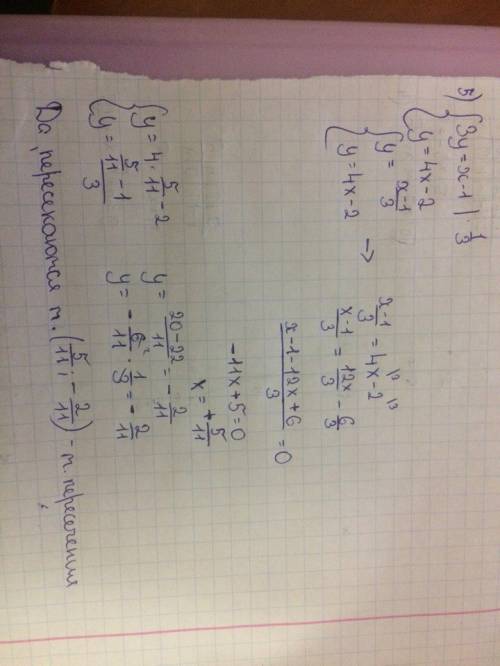 5) { 3y = x - 1 | · 1/3
{ y = 4x - 2
{ y = (x-1)/3
{ y = 4x - 2
→
(x-1)/3 = 4x - 2
(x-1)/3 = 12x/3 - 6/3
(x-1-12x+6)/3 = 0
-11x + 5 = 0
x = + 5/11
{ y = 4 · 5/11 - 2
{ y = (5/11 - 1)/3
y = (20-22)/11 = - 2/11
y = - 6/11 · 1/3 = - 2/11
Да, пересекаются т. (5/11; - 2/11) - т. пересечения